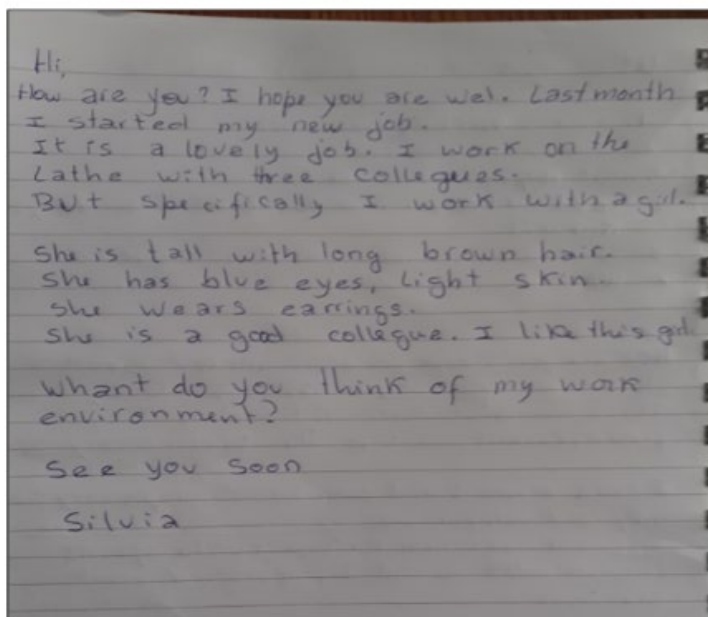 Hi,
How are you? I hope you are wel. Last month
I started my new job.
It is a lovely job. I work on the
Lathe with three collegues.
But specifically I work with a girl.
She is tall with long brown hair.
She has blue eyes, light skin.
She wears earrings.
She is a good collegue. I like this girl.
Whant do you think of my work
environment?
See you soon
Silvia